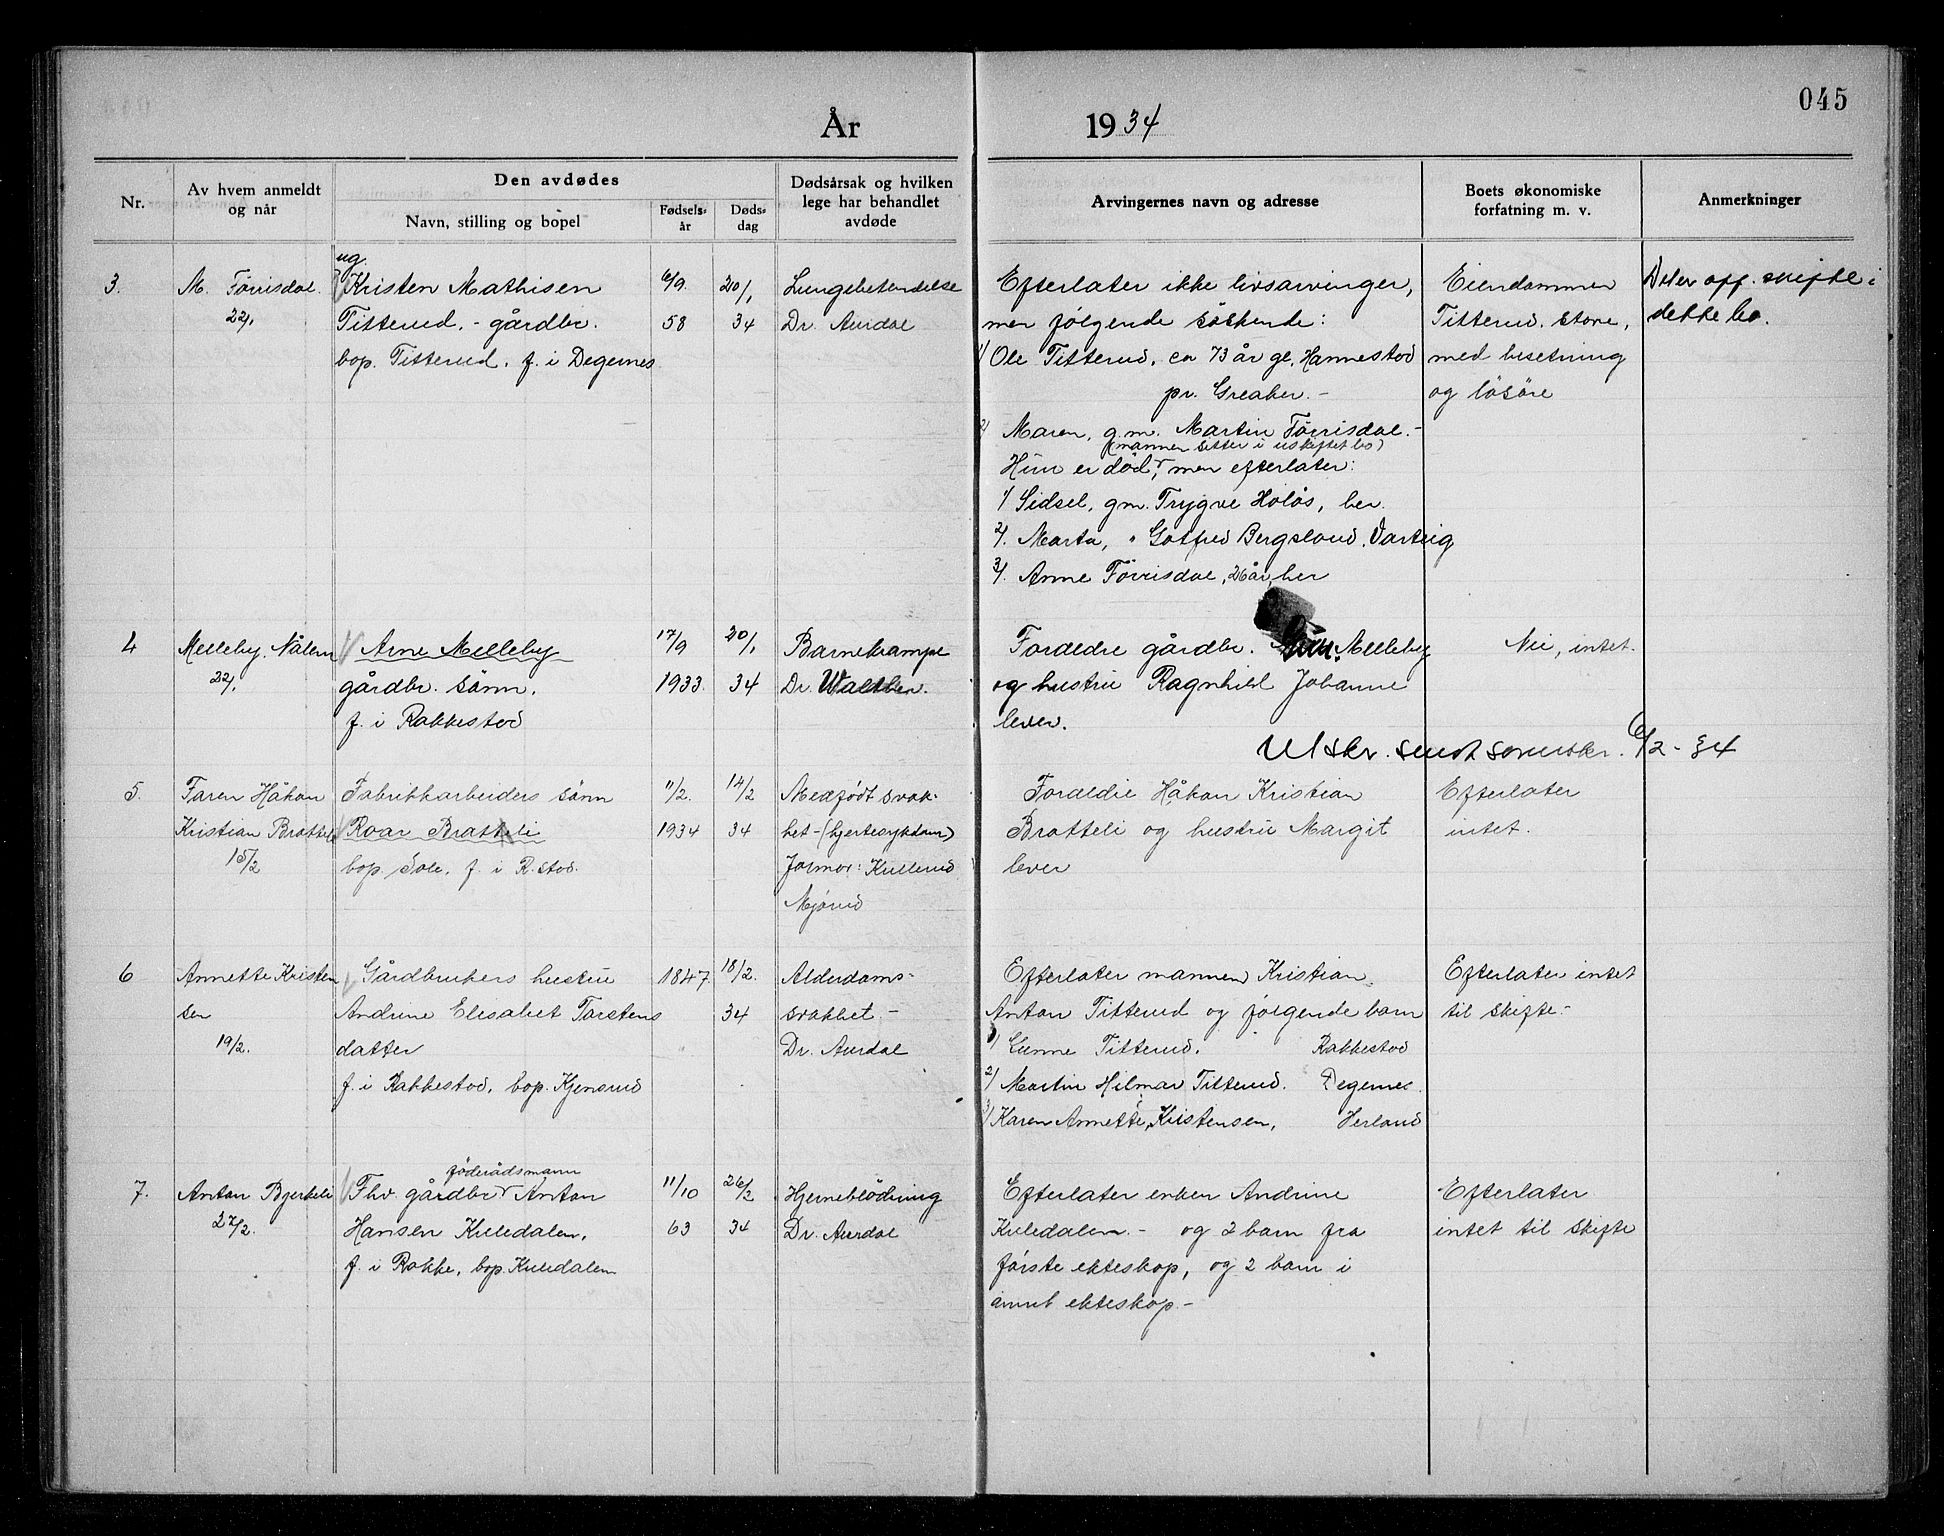 045
År 1934
Nr.
Av hvem anmeldt og når
Den avdødes
Navn, stilling og bopel
Fødsels-år
Døds-dag
Dødsårsak og hvilken lege har behandlet avdøde
Arvingernes navn og adresse
Boets økonomiske forfatning m. v.
Anmerkninger
3.
M. Förrisdal.
22/1
ug.
Kristen Mathisen
Titterud, - gårdbr.
bop. Titterud, f. i Degernes
6/9.
58
20/1
34
Lungebetendelse
Dr. Aurdal
Efterlater ikke livsarvinger,
men følgende søskende:
1/ Ole Titterud, ca 73 år gl. Hannestad
pr. Greaker. -
2/ Maren, g.m. Martin Förrisdal. -
(mannen sitter i uskiftet bo)
Hun er död, men efterlater:
1/ Sidsel, gm. Trygve Holös, her.
2/. Marta, " Gotfred Bergsland, Varteig
3/. Anne Förrisdal, 26 år, her
Eiendommen
Titterud store,
med besetning
og lösöre
Det er off. skifte i
dette bo.
4
Melleby. Nålum
22/1
Arne Melleby
gårdbr. sönn.
f. i Rakkestad
17/9
1933.
20/1
34
Barnekrampe
Dr. Walther.
Foreldre gårdbr. Melleby
og hustru Ragnhild Johanne
lever.
Nei, intet.
Utskr. sendt sorenskr. 6/2 - 34
5.
Faren Håkon
Kristian Bratteli
15/2
Fabrikkarbeiders sönn
Roar Bratteli
bop. Sole, f. i R.stad.
11/2.
1934
14/2
34
Medfödt svak-
het - (hjertesykdom)
Jormor: Kullerud
Mjörud
Foreldre Håkon Kristian
Bratteli og hustru Margit
lever
Efterlater
intet.
6
Annette Kristen
sen
19/2.
Gårdbrukers hustru
Andrine Elisabet Torstens
datter
f. i Rakkestad, bop. Kjensrud
1847.
18/2.
34
Alderdoms-
svakhet -
Dr. Aurdal
Efterlater mannen Kristian
Anton Titterud og følgende barn
1/ Gunne Titterud. Rakkestad
2/ Martin Hilmar Titterud. Degernes.
3/ Karen Annette Kristensen, Herland
Efterlater intet
til skifte -
7.
Anton Bjerkeli
27/2.
föderådsmann
Fhv. gårdbr. Anton
Hansen Kuledalen,
f. i Rakke, bop. Kuledalen
11/10
63
26/2
34
Hjerneblödning
Dr. Aurdal
Efterlater enken Andrine
Kuledalen. - og 2 barn fra
første ekteskap, og 2 barn i
annet ekteskap. -
Efterlater
intet til skifte